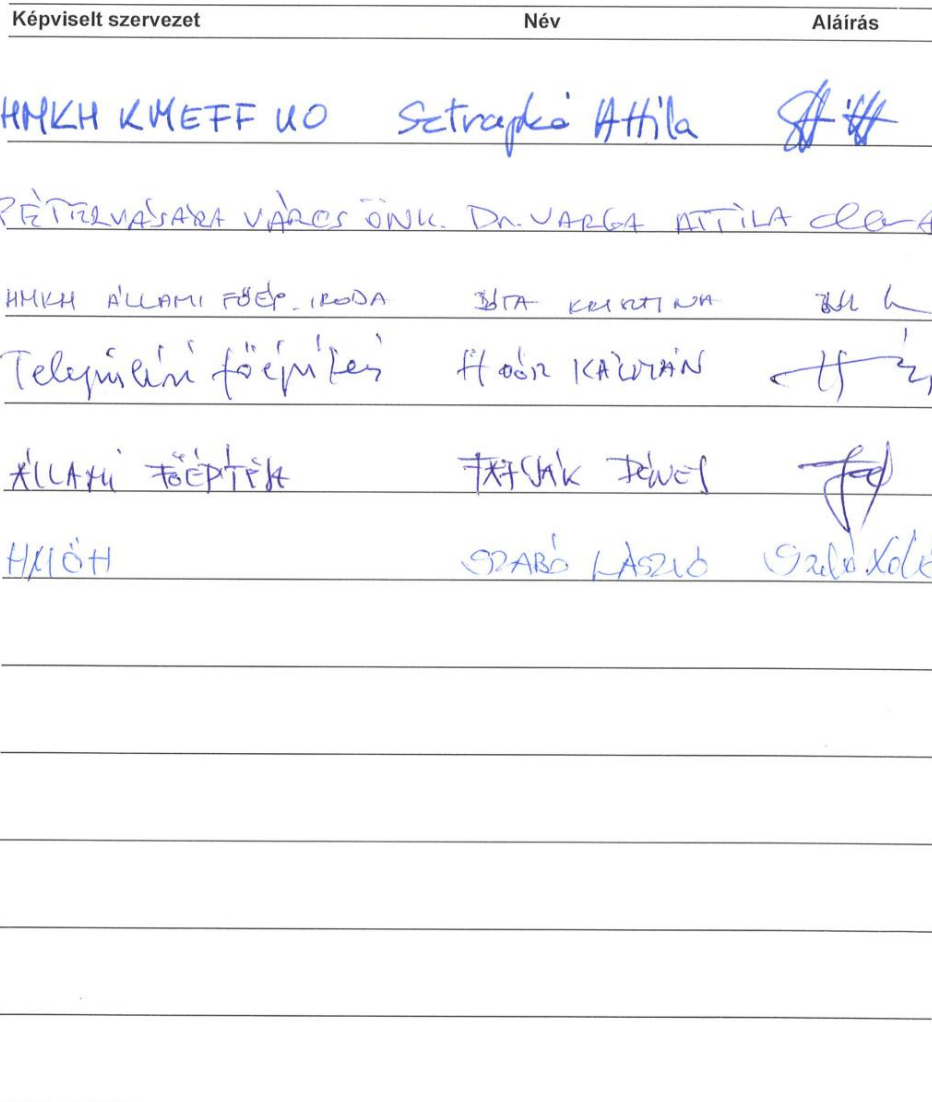 Képviselt szervezet Név Aláírás
HMKH KMEFF UO Sztrapkó Attila
PÉTERVÁSÁRA VÁROS ÖNK. Dr. VARGA ATTILA
HMKH ÁLLAMI FŐÉP. IRODA KRISZTINA
Települési főépítész KÁLMÁN
ÁLLAMI FŐÉPÍTÉSZ DÉNES
HMÖH SZABÓ LÁSZLÓ Szabó